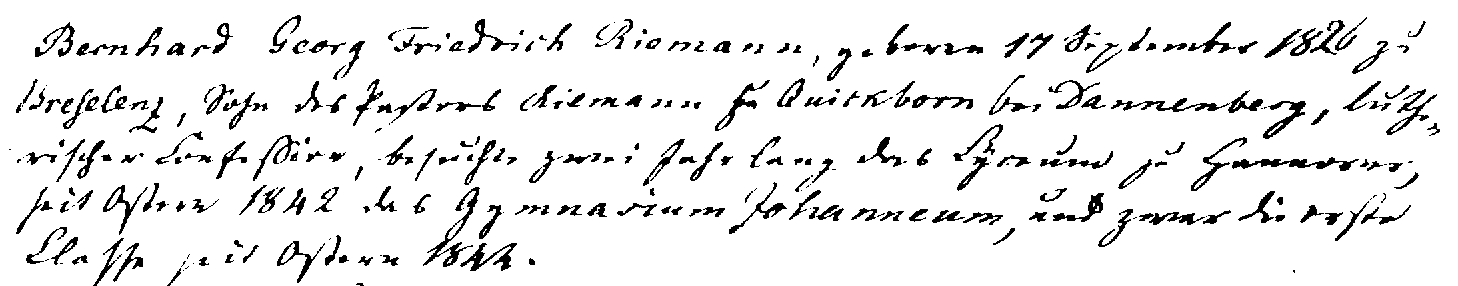 Bernhard Georg Friedrich Riemann, geboren 17 September 1826 zu
Breselenz, Sohn des Pastors Riemann zu Quickborn bei Dannenberg, luthe-
rischer Confession, besuchte zwei Jahr lang das Lyceum zu Hannover,
seit Ostern 1842 das Gymnasium Johanneum, und zwar die erste
Classe seit Ostern 1844.